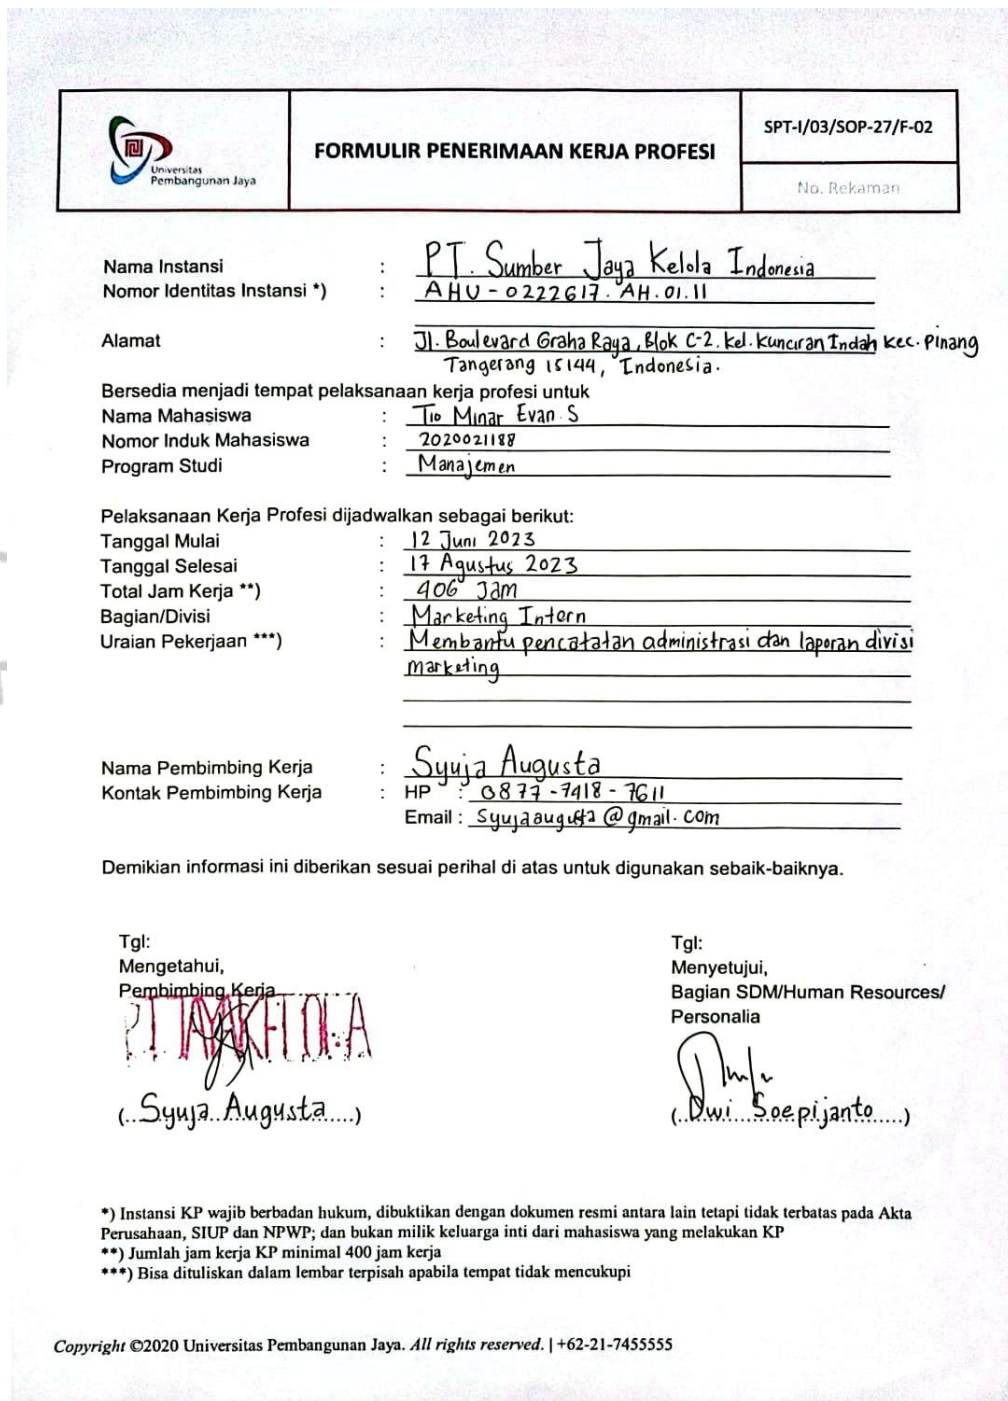 Universitas
Pembangunan Jaya
FORMULIR PENERIMAAN KERJA PROFESI
SPT-I/03/SOP-27/F-02
No. Rekaman
Nama Instansi : PT. Sumber Jaya Kelola Indonesia
Nomor Identitas Instansi *) : AHU - 0222617. AH. 01. 11
Alamat : Jl. Boulevard Graha Raya, Blok C-2. Kel. Kunciran Indah Kec. Pinang
Tangerang 15144, Indonesia.
Bersedia menjadi tempat pelaksanaan kerja profesi untuk
Nama Mahasiswa : Tio Minar Evan. S
Nomor Induk Mahasiswa : 2020021188
Program Studi : Manajemen
Pelaksanaan Kerja Profesi dijadwalkan sebagai berikut:
Tanggal Mulai : 12 Juni 2023
Tanggal Selesai : 17 Agustus 2023
Total Jam Kerja **) : 406 Jam
Bagian/Divisi : Marketing Intern
Uraian Pekerjaan ***) : Membantu pencatatan administrasi dan laporan divisi
marketing
Nama Pembimbing Kerja : Syuja Augusta
Kontak Pembimbing Kerja : HP : 0877-7418-7611
Email : Syujaaugusta@gmail.com
Demikian informasi ini diberikan sesuai perihal di atas untuk digunakan sebaik-baiknya.
Tgl:
Mengetahui,
Pembimbing Kerja
(..Syuja Augusta....)
Tgl:
Menyetujui,
Bagian SDM/Human Resources/
Personalia
(..Dwi Soepijanto.....)
*) Instansi KP wajib berbadan hukum, dibuktikan dengan dokumen resmi antara lain tetapi tidak terbatas pada Akta
Perusahaan, SIUP dan NPWP; dan bukan milik keluarga inti dari mahasiswa yang melakukan KP
**) Jumlah jam kerja KP minimal 400 jam kerja
***) Bisa dituliskan dalam lembar terpisah apabila tempat tidak mencukupi
Copyright ©2020 Universitas Pembangunan Jaya. All rights reserved. | +62-21-7455555